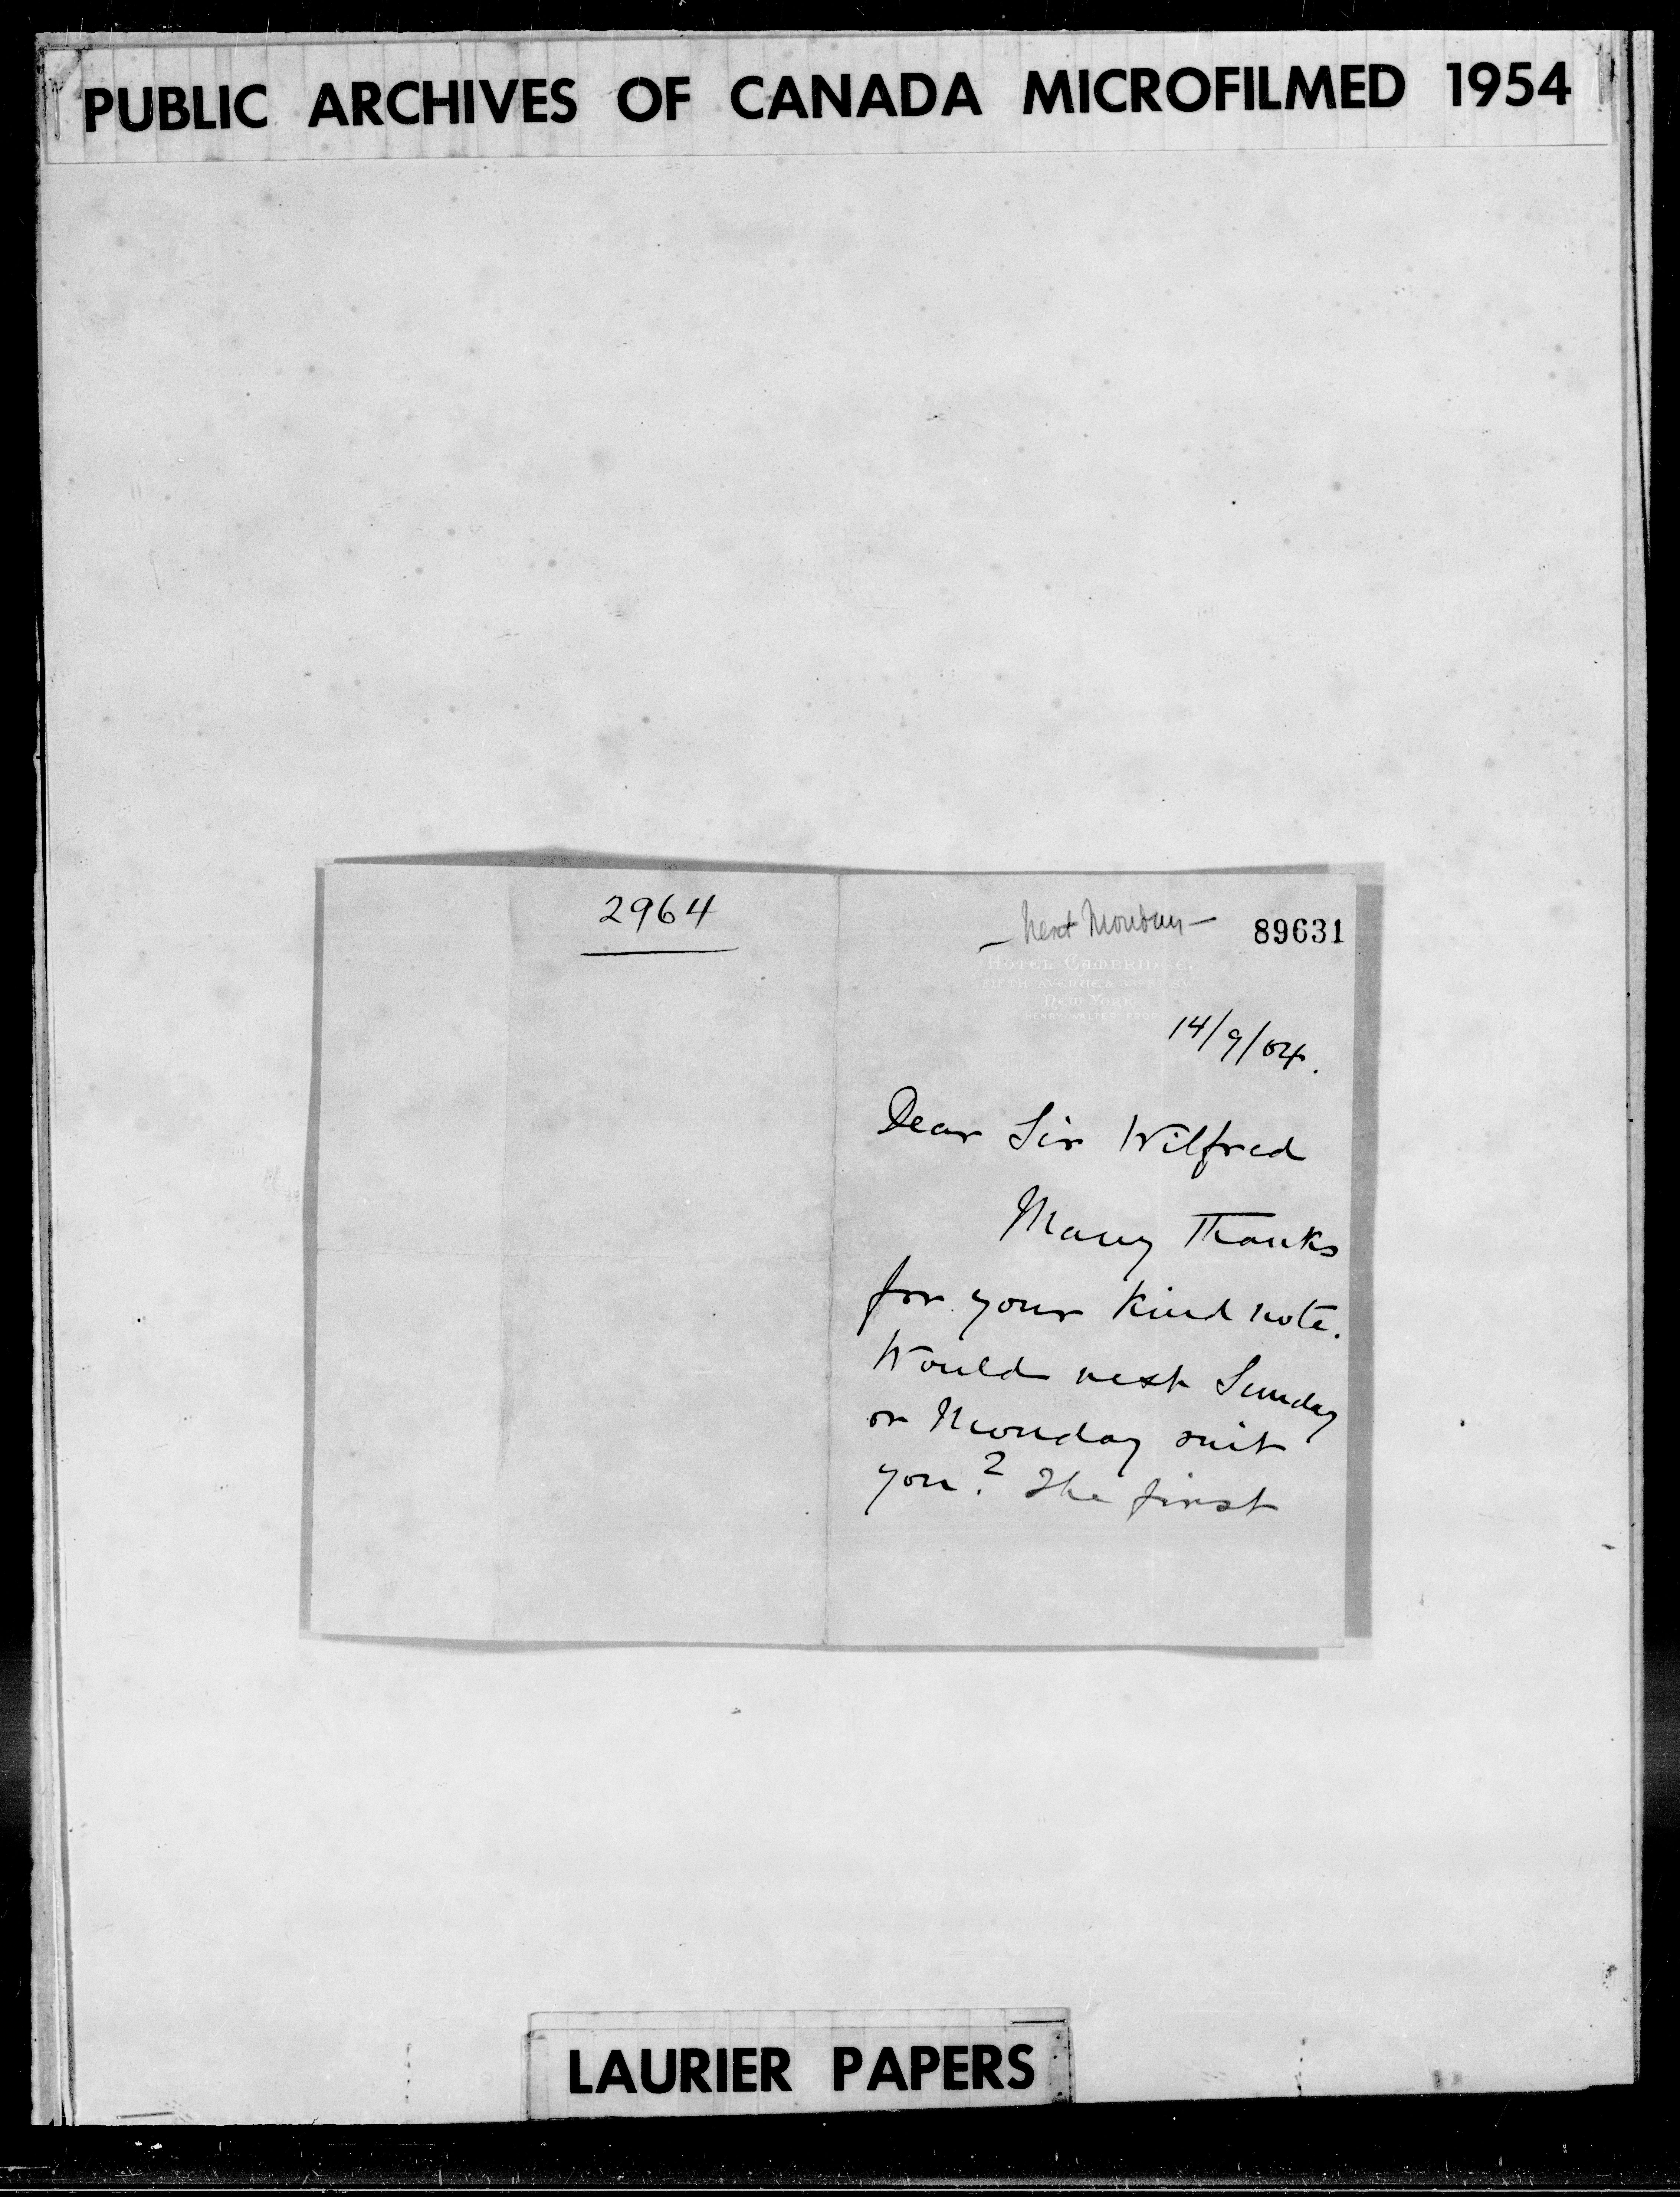 PUBLIC ARCHIVES OF CANADA MICROFILMED 1954
2964
— Next Monday —
89631
HOTEL CAMBRIDGE,
FIFTH AVENUE &
NEW YORK
HENRY WALTER PROP
14/9/04.
Dear Sir Wilfred
Many Thanks
for your kind note.
Would next Sunday
or Monday suit
you? The first
LAURIER PAPERS